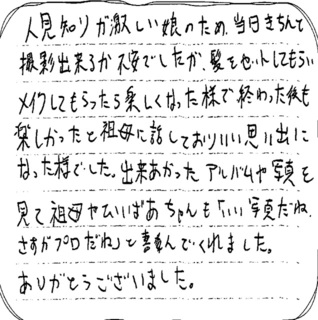 人見知りが激しい娘のため、当日きちんと
撮影出来るか不安でしたが、髪をセットしてもらい
メイクしてもらったら楽しくなった様で終わった後も
楽しかったと祖母に話しておりいい思い出に
なった様でした。出来あがった アルバムや写真を
見て祖母やひいばあちゃんも「いい写真だね、
さすがプロだね」と喜んでくれました。
ありがとうございました。